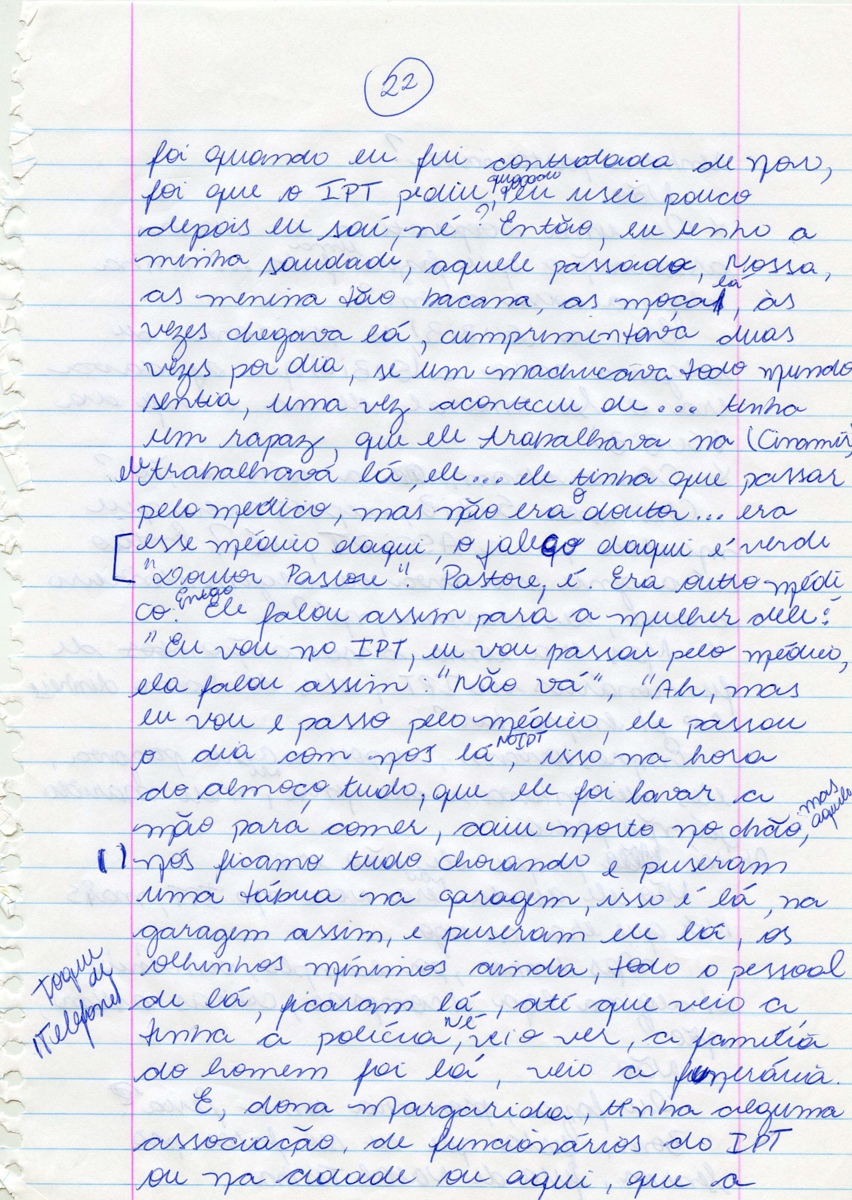 22
foi quando eu fui contratada de novo,
foi que o IPT pediu, quando eu usei pouco
depois eu saí, né? Então, eu tenho a
minha saudade, aquele passado, Nossa,
as menina tão bacana, as moça lá, às
vezes chegava lá, cumprimentava duas
vezes por dia, se um machucava todo mundo
sentia, uma vez aconteceu de... tinha
um rapaz, que ele trabalhava na
ele trabalhava lá, ele... ele tinha que passar
pelo médico, mas não era o doutor... era
esse médico daqui, o daqui é verde
"Doutor Pastore". Pastore, é. Era outro médi
co. Então Ele falou assim para a mulher dele:
"Eu vou no IPT, eu vou passar pelo médico,
ela falou assim: "Não vá", "Ah, mas
eu vou e passo pelo médico, ele passou
o dia com nós lá NO IPT, isso na hora
do almoço, tudo, que ele foi lavar a
mão para comer, caiu morto no chão, mas aquele
( ) nós ficamo tudo chorando e puseram
uma tábua na garagem, isso é lá, na
garagem assim, e puseram ele lá, os
olhinhos mínimos ainda, todo o pessoal
Toque de Telefone
de lá, ficaram lá, até que veio a
tinha a polícia, NÉ, veio ver, a família
do homem foi lá, veio a funerária.
E, dona Margarida, tinha alguma
associação, de funcionários do IPT
ou na cidade ou aqui, que a